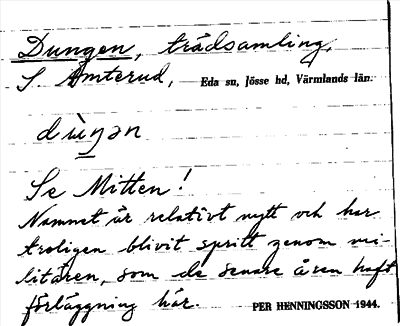 Dungen, trädsamling,
S. Ämterud, Eda sn, Jösse hd, Värmlands län.
dùŋən
Se Mitten!
Namnet är relativt nytt och har
troligen blivit spritt genom mi-
litären, som de senare åren haft
förläggning här. PER HENNINGSSON 1944.